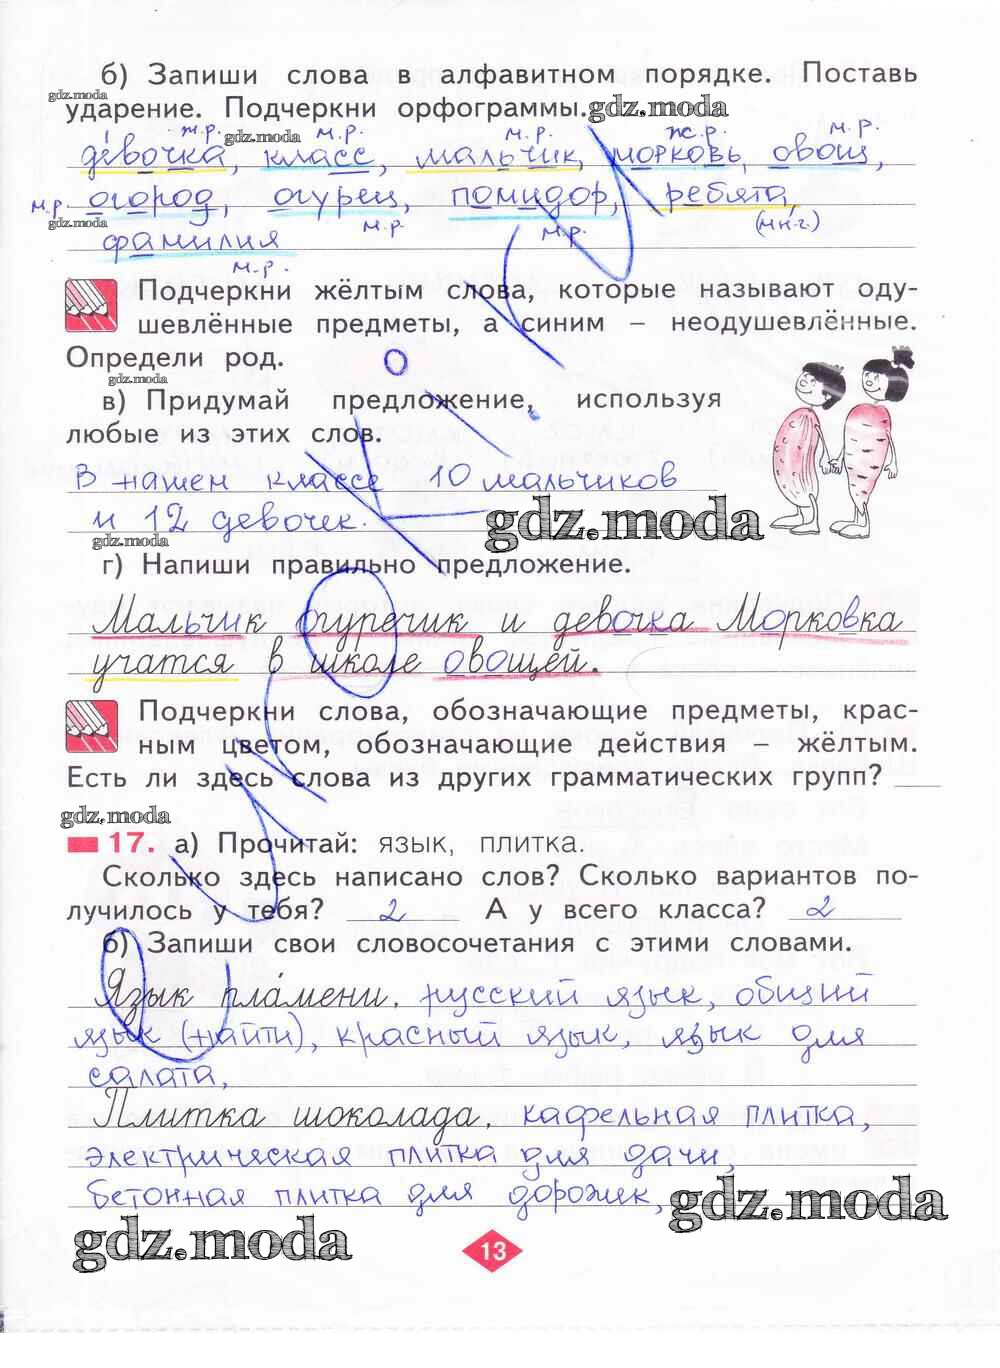 б) Запиши слова в алфавитном порядке. Поставь
gdz.moda
ударение. Подчеркни орфограммы.gdz.moda
ж.р. gdz.moda м.р. м.р. ж.р. м.р.
девочка, класс, мальчик, морковь, овощ,
м.р. огород, огурец, помидор, ребята,
gdz.moda м.р. м.р. (мн.ч.)
фамилия
м.р.
Подчеркни жёлтым слова, которые называют оду-
шевлённые предметы, а синим – неодушевлённые.
Определи род.
gdz.moda
в) Придумай предложение, используя
любые из этих слов.
В нашем классе 10 мальчиков
и 12 девочек.
gdz.moda gdz.moda
г) Напиши правильно предложение.
Мальчик огуречик и девочка Морковка
учатся в школе овощей.
Подчеркни слова, обозначающие предметы, крас-
ным цветом, обозначающие действия – жёлтым.
Есть ли здесь слова из других грамматических групп?
gdz.moda
17. а) Прочитай: язык, плитка.
Сколько здесь написано слов? Сколько вариантов по-
лучилось у тебя? 2 А у всего класса? 2
б) Запиши свои словосочетания с этими словами.
Язык пла́мени, русский язык, общий
язык (найти), красный язык, язык для
салата,
Плитка шоколада, кафельная плитка,
электрическая плитка для дачи,
бетонная плитка для дорожек,
gdz.moda
gdz.moda
13